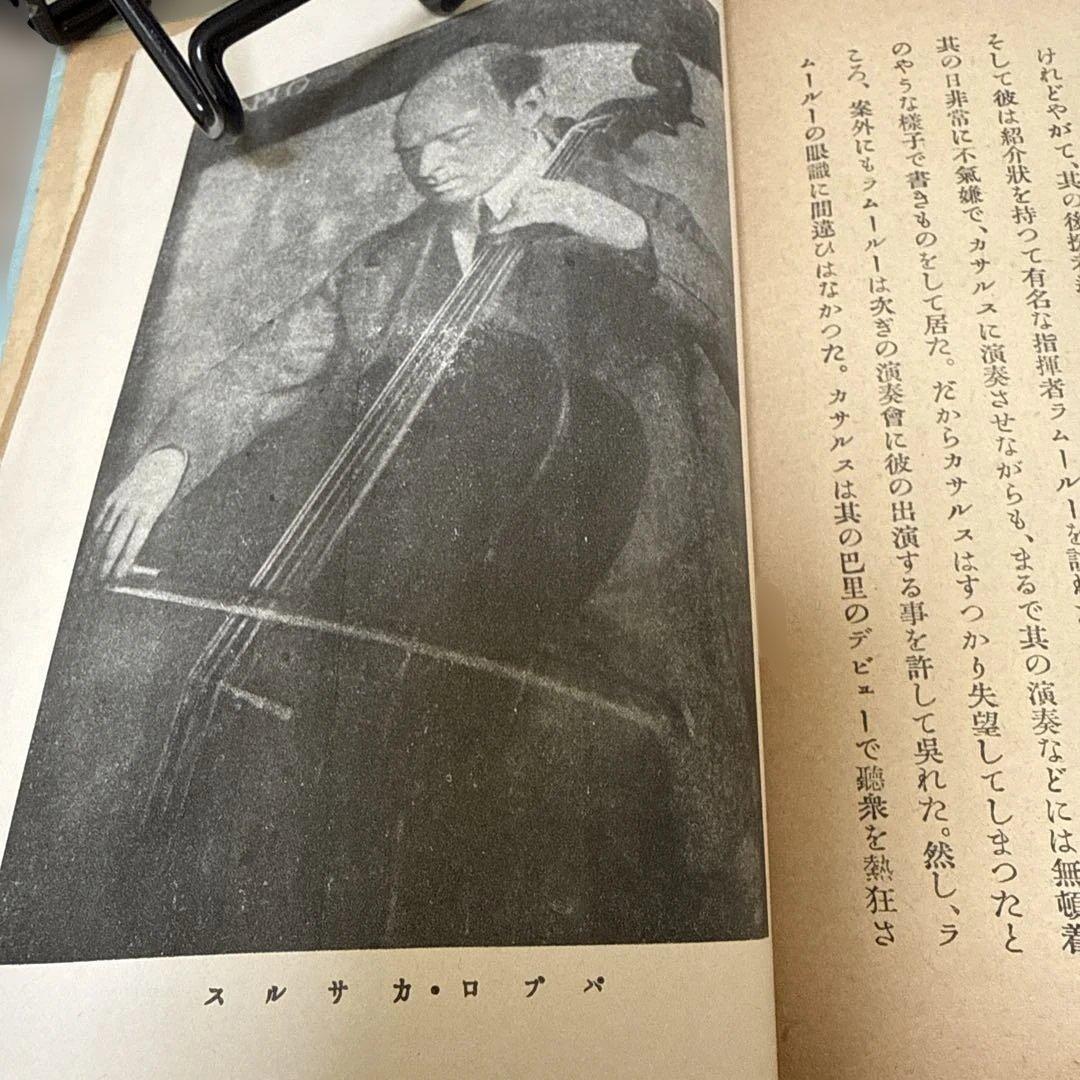 けれどやがて、其の後
そして彼は紹介狀を持つて有名な指揮者ラムールーを
其の日非常に不氣嫌で、カサルスに演奏させながらも、まるで其の演奏などには無頓着
のやうな樣子で書きものをして居た。だからカサルスはすつかり失望してしまつたと
ころ、案外にもラムールーは次ぎの演奏會に彼の出演する事を許して吳れた。然し、ラ
ムールーの眼識に間違ひはなかつた。カサルスは其の巴里のデビューで聽衆を熱狂さ
スルサカ・ロブパ